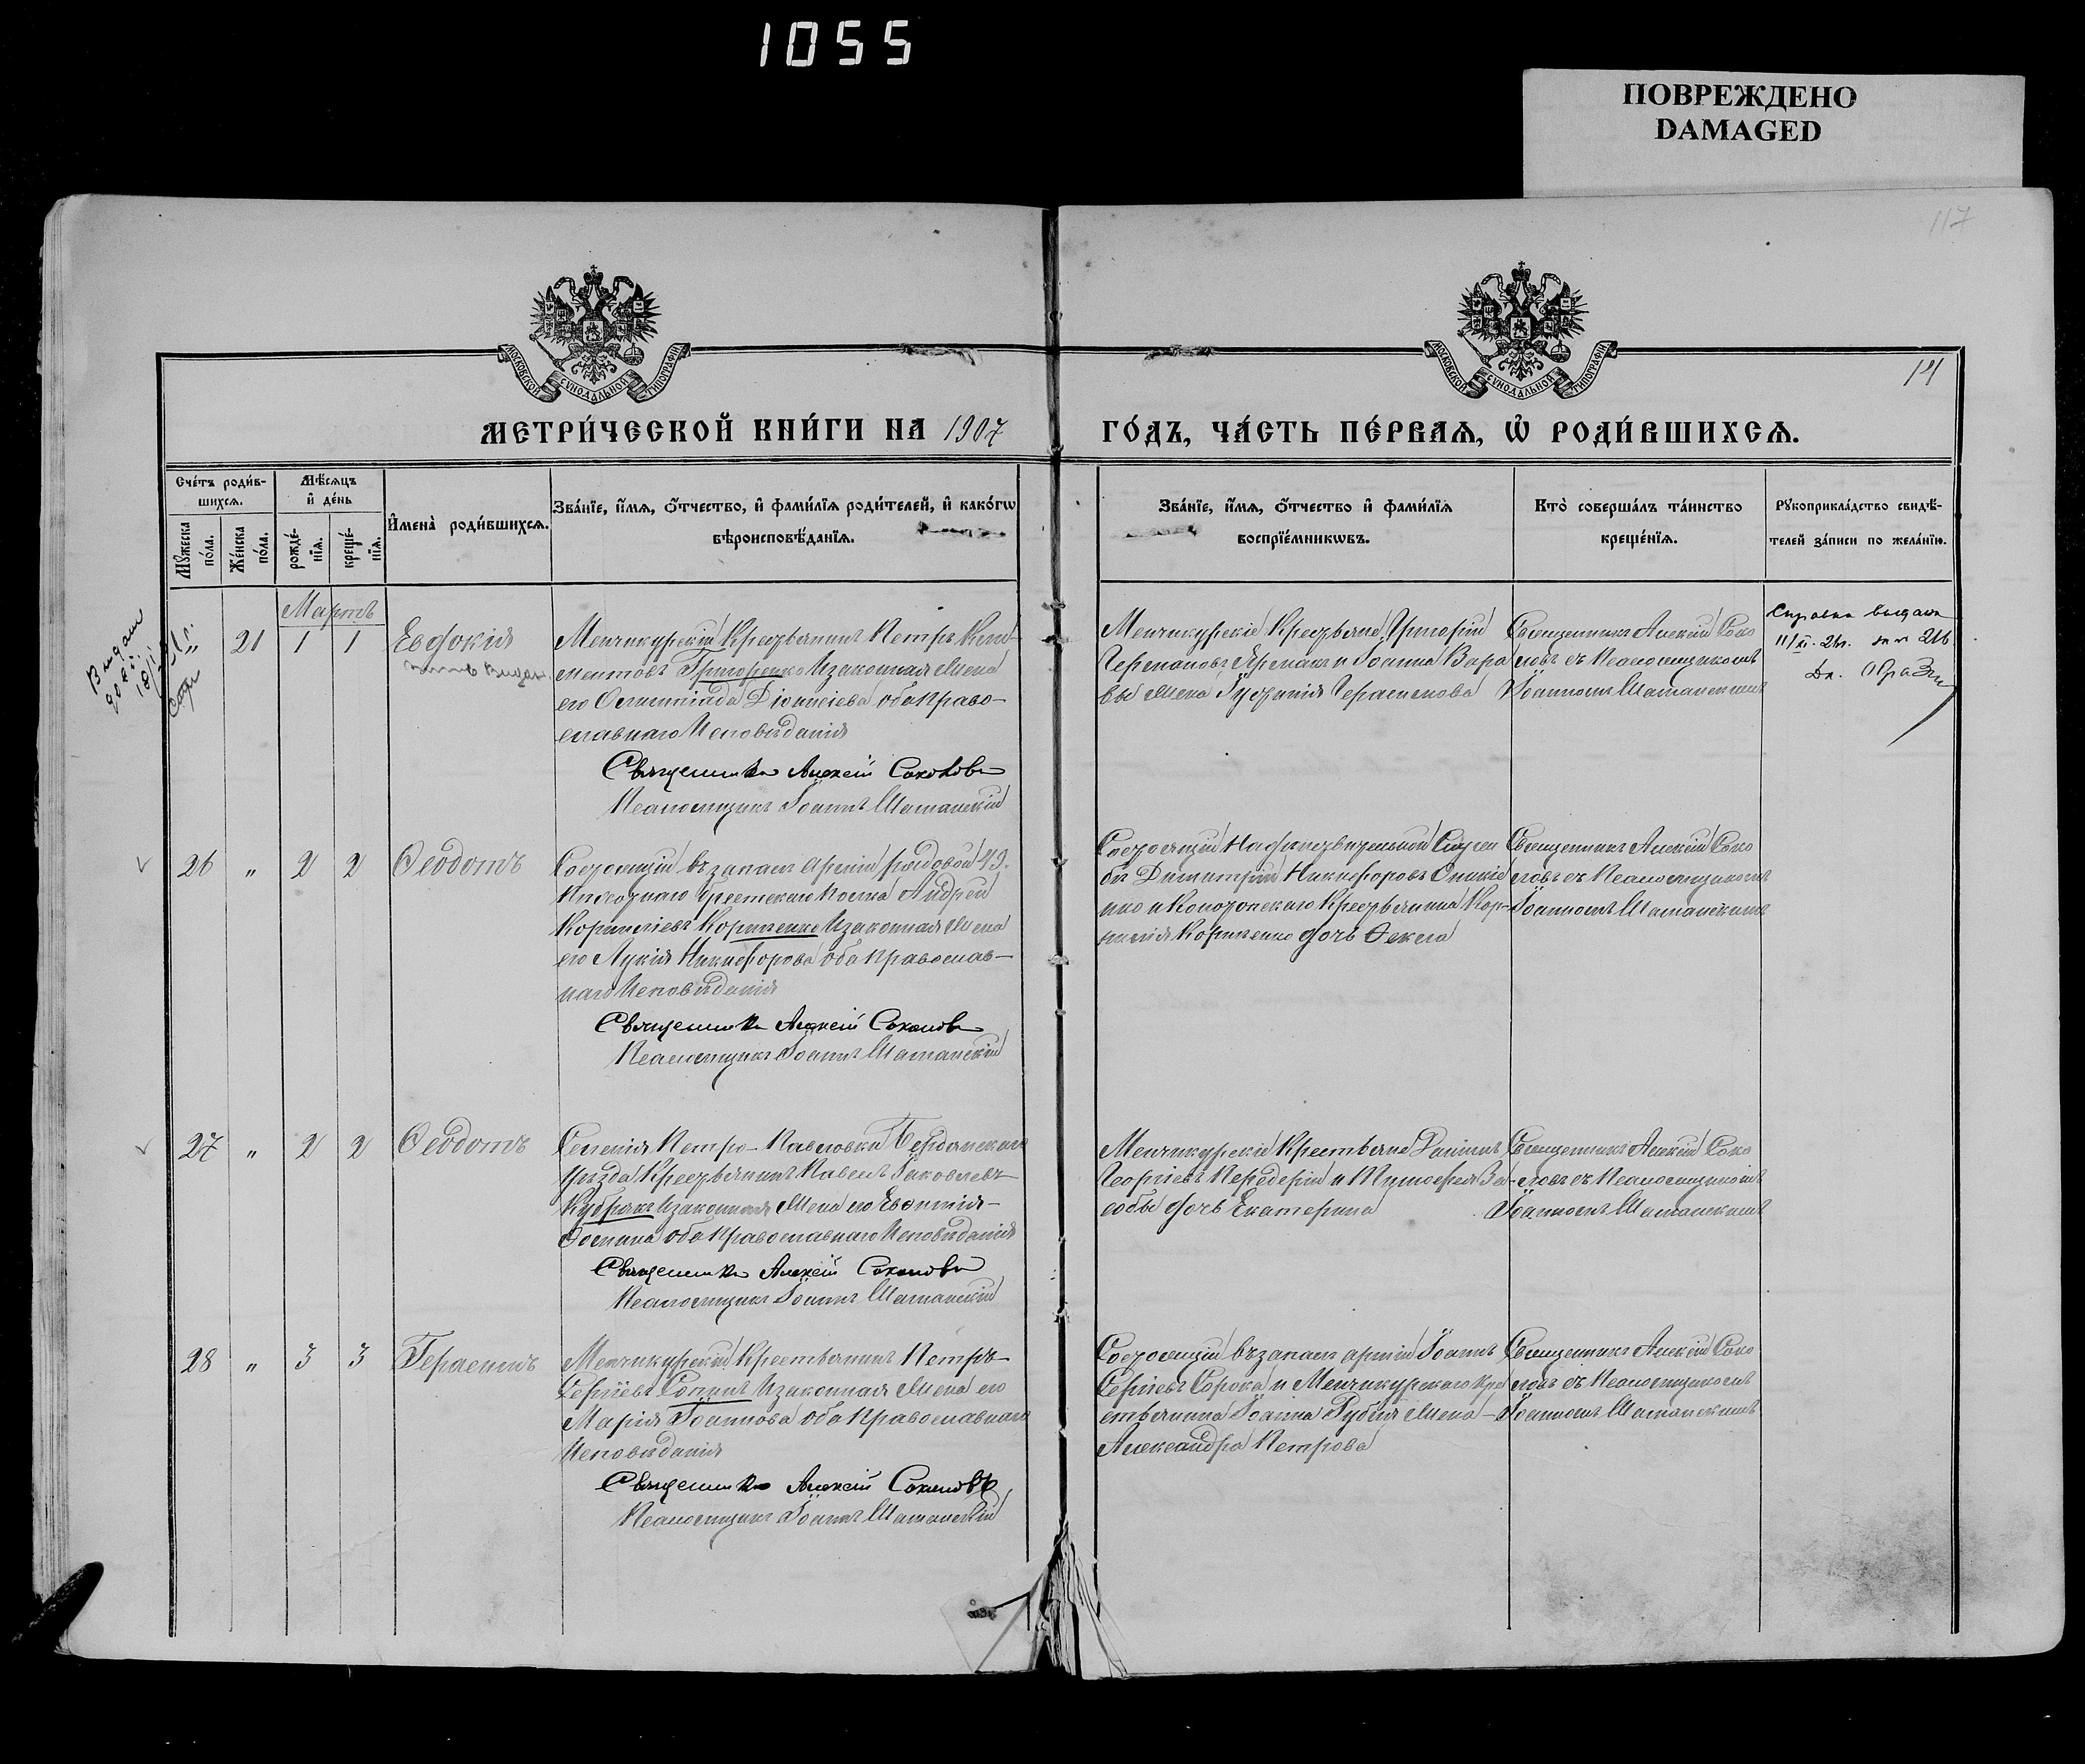 1055
ПОВРЕЖДЕНО
DAMAGED
117
14
МОСКОВСКОЙ СѴНОДАЛЬНОЙ ТИПОГРАФІИ
МОСКОВСКОЙ СѴНОДАЛЬНОЙ ТИПОГРАФІИ
МЕТРИ́ЧЕСКОЙ КНИ́ГИ НА 1907
ГО́ДЪ, ЧА́СТЬ ПЕ́РВАѦ, Ѡ҆ РОДИ́ВШИХСѦ.
Сче́тъ роди́в-
шихсѧ.
Мꙋ́жеска по́ла.
Же́нска по́ла.
Мѣ́сѧцъ
и҆ де́нь
рожде́-
нїѧ.
креще́-
нїѧ.
И҆мена̀ роди́вшихсѧ.
Зва́нїе, и҆́мѧ, ѻ҆́тчество, и҆ фами́лїѧ роди́телей, и҆ како́гѡ
вѣроисповѣ́данїѧ.
Зва́нїе, и҆́мѧ, ѻ҆́тчество и҆ фами́лїѧ
воспрїе́мникѡвъ.
Кто̀ соверша́лъ та́инство
креще́нїѧ.
Рꙋкоприкла́дство свидѣ́-
телей за́писи по жела́нїю.
Мартъ
Выдан
„ 21 1 1 Евдокія
Менчикурскій Крестьянинъ Петръ Кли-
ментовъ Григоренко И законная Жена
его Олимпіада Діонисіева оба Право-
славнаго Исповѣданія
Священникъ Алексій Соколовъ
Псаломщикъ Іоаннъ Шаманскій
Менчикурскіе Крестьяне Григорій
Германовъ Яремакъ и Іоанна Вара
вы Жена Гликерія Герасимова
Священникъ Алексій Соко
ловъ съ Псаломщикомъ
Іоанномъ Шаманскимъ
Справка выдана
26 „ 2 2 Ѳеодотъ
Состоящій въ запасѣ арміи рядовой 49.
Пѣхотнаго Брестскаго Полка Андрей
Корниліевъ Корниенко И законная Жена
его Лукія Никифорова оба православ-
наго Исповѣданія
Священникъ Алексій Соколовъ
Псаломщикъ Іоаннъ Шаманскій
Состоящій На дѣйствительной Служ
бѣ Димитрій Никифоровъ
и Крестьянина Кор-
нилія Корниенко дочь Ѳекла
Священникъ Алексій Соко
ловъ съ Псаломщикомъ
Іоанномъ Шаманскимъ
27 „ 2 2 Ѳеодотъ
Селенія Петро-Павловки Бердянскаго
уѣзда Крестьянинъ Павелъ Іаковлевъ
Кубракъ И законная Жена его Евѳимія
Ѳомина оба Православнаго Исповѣданія
Священникъ Алексій Соколовъ
Псаломщикъ Іоаннъ Шаманскій
Менчикурскіе Крестьяне Даніилъ
Георгіевъ Передерій и Тимоѳея За
собы дочь Екатерина
Священникъ Алексій Соко
ловъ съ Псаломщикомъ
Іоанномъ Шаманскимъ
28 „ 3 3 Герасимъ
Менчикурскій Крестьянинъ Петръ
Сергіевъ Сопинъ И законная Жена его
Марія Іоаннова оба Православнаго
Исповѣданія
Священникъ Алексій Соколовъ
Псаломщикъ Іоаннъ Шаманскій
Состоящій въ запасѣ арміи Іоаннъ
Сергіевъ Сорока и Менчикурскаго Кре
стьянина Іоанна Рубля Жена
Александра Петрова
Священникъ Алексій Соко
ловъ съ Псаломщикомъ
Іоанномъ Шаманскимъ